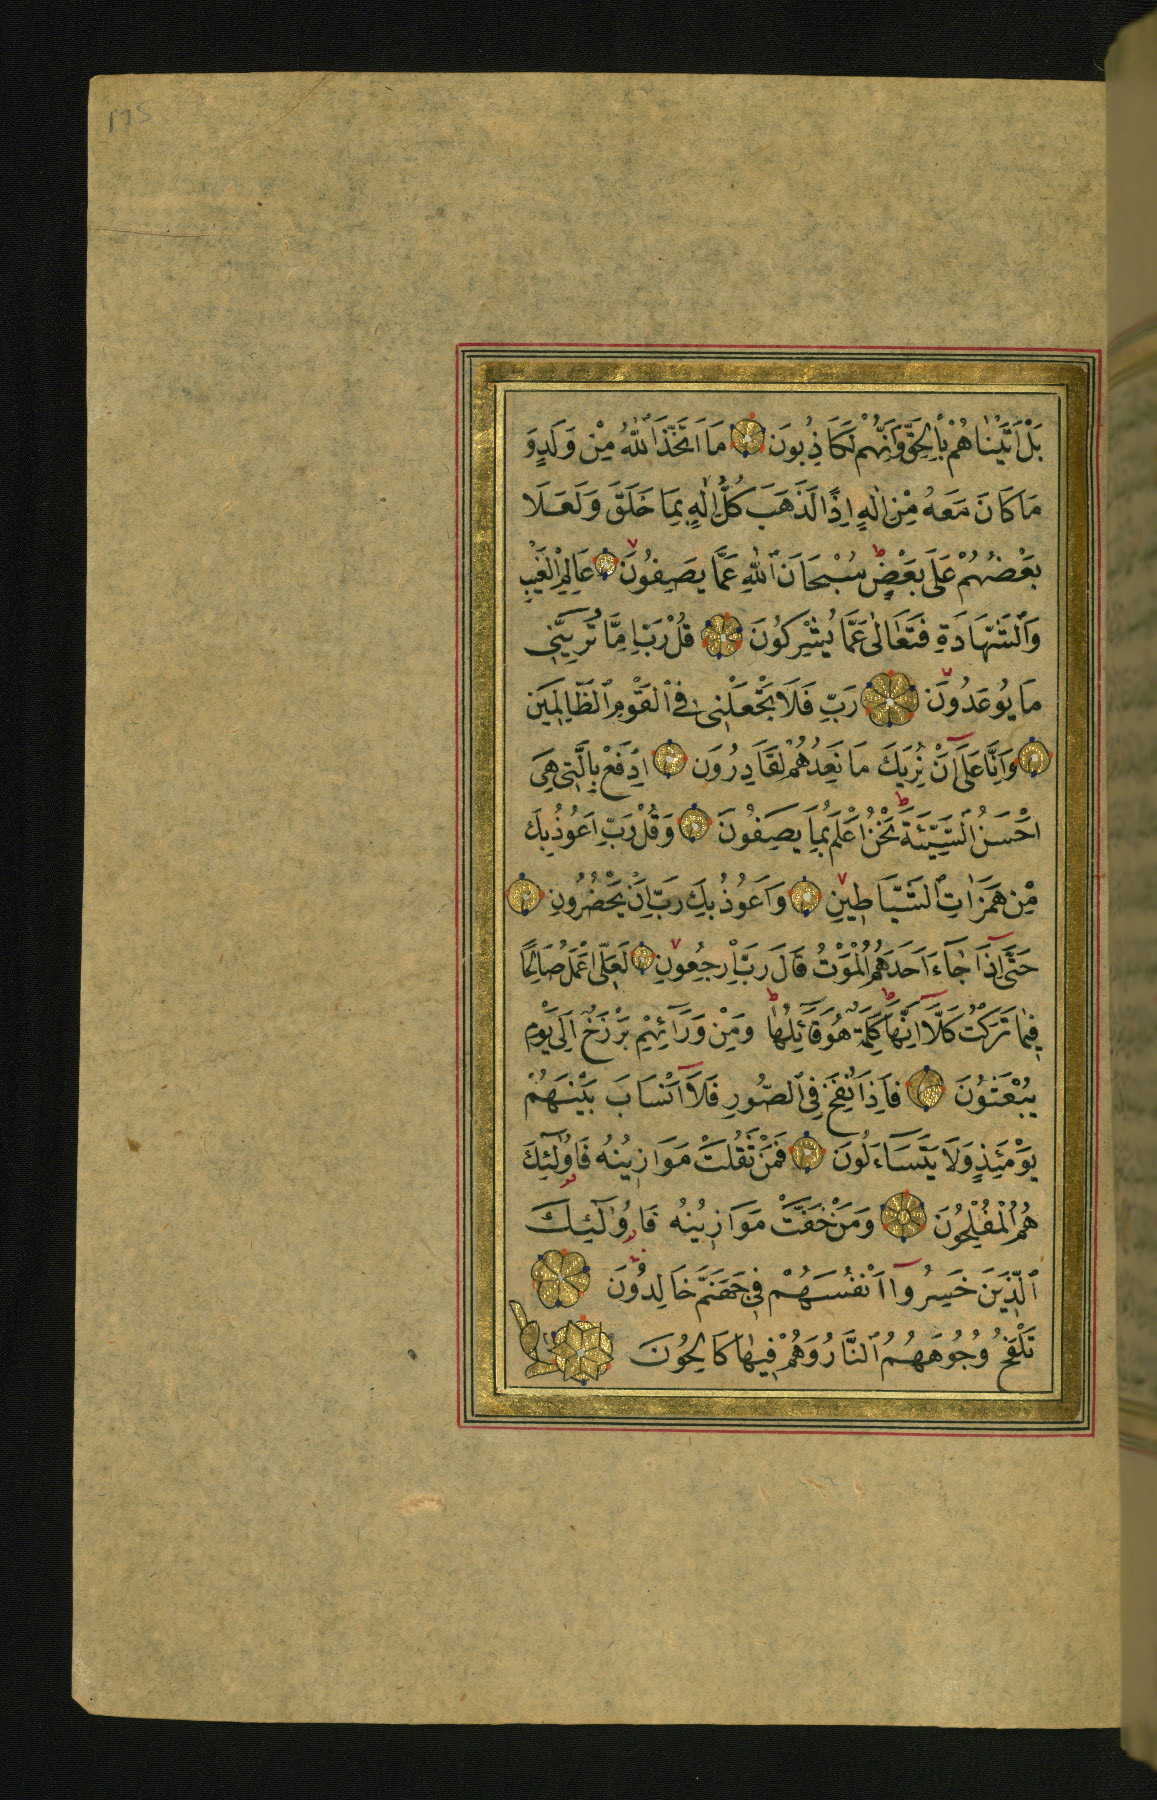 ١٢٥
بَلْ اَتَيْنَاهُمْ بِالْحَقِّ وَاِنَّهُمْ لَكَاذِبُونَ مَا اتَّخَذَ اللّٰهُ مِنْ وَلَدٍ وَ
مَا كَانَ مَعَهُ مِنْ اِلٰهٍ اِذًا لَذَهَبَ كُلُّ اِلٰهٍ بِمَا خَلَقَ وَلَعَلَا
بَعْضُهُمْ عَلٰى بَعْضٍ ط سُبْحَانَ اللّٰهِ عَمَّا يَصِفُونَ عَالِمِ الْغَيْبِ
وَالشَّهَادَةِ فَتَعَالٰى عَمَّا يُشْرِكُونَ قُلْ رَبِّ اِمَّا تُرِيَنِّى
مَا يُوعَدُونَ رَبِّ فَلَا تَجْعَلْنِى فِى الْقَوْمِ الظَّالِمِينَ
وَاِنَّا عَلٰٓى اَنْ نُرِيَكَ مَا نَعِدُهُمْ لَقَادِرُونَ اِدْفَعْ بِالَّتِى هِىَ
اَحْسَنُ السَّيِّئَةَ ط نَحْنُ اَعْلَمُ بِمَا يَصِفُونَ وَقُلْ رَبِّ اَعُوذُ بِكَ
مِنْ هَمَزَاتِ الشَّيَاطِينِ وَاَعُوذُ بِكَ رَبِّ اَنْ يَحْضُرُونِ
حَتّٰٓى اِذَا جَآءَ اَحَدَهُمُ الْمَوْتُ قَالَ رَبِّ ارْجِعُونِ لَعَلِّى اَعْمَلُ صَالِحًا
فِيمَا تَرَكْتُ كَلَّا ط اِنَّهَا كَلِمَةٌ هُوَ قَآئِلُهَا ط وَمِنْ وَرَآئِهِمْ بَرْزَخٌ اِلٰى يَوْمِ
يُبْعَثُونَ فَاِذَا نُفِخَ فِى الصُّورِ فَلَآ اَنْسَابَ بَيْنَهُمْ
يَوْمَئِذٍ وَلَا يَتَسَآءَلُونَ فَمَنْ ثَقُلَتْ مَوَازِينُهُ فَاُولٰٓئِكَ
هُمُ الْمُفْلِحُونَ وَمَنْ خَفَّتْ مَوَازِينُهُ فَاُولٰٓئِكَ
الَّذِينَ خَسِرُوٓا اَنْفُسَهُمْ فِى جَهَنَّمَ خَالِدُونَ
تَلْفَحُ وُجُوهَهُمُ النَّارُ وَهُمْ فِيهَا كَالِحُونَ